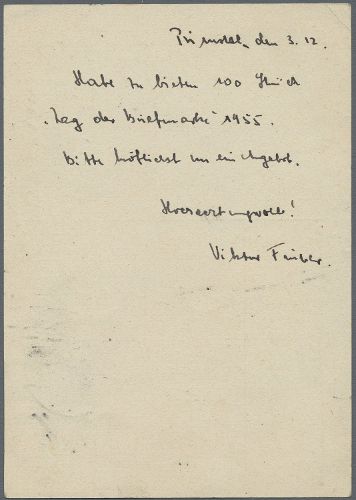 den 3.12.
Habe zu bieten 100 Stück
"Tag der Briefmarke" 1955.
Bitte höflichst um ein Angebot.
Hochachtungsvoll!
Viktor